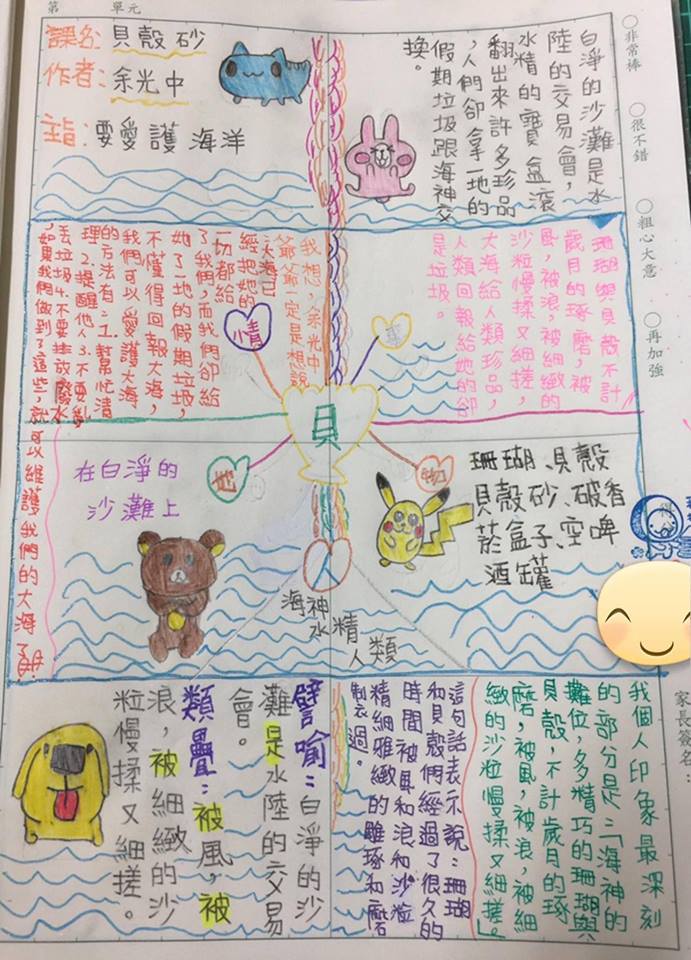 第 單元
課名：貝殼砂
作者：余光中
主旨：要愛護海洋
白淨的沙灘是水
陸的交易會，
水精的寶盒滾
翻出來許多珍品
，人們卻拿一地的
假期垃圾跟海神交
換。
○非常棒
○很不錯
○粗心大意
○再加強
珊瑚與貝殼不計
歲月的琢磨，被
風，被浪，被細緻的
沙粒慢揉又細搓，
大海給人類珍品，
人類回報給她的卻
是垃圾。
我想，余光中
爺爺一定是想說
大海已
經把她的
一切都給
了我們，而我們卻給
她了一地的假期垃圾，
不懂得回報大海，
我們可以愛護大海
的方法有：1.幫忙清
理2.提醒他人3.不要亂
丟垃圾4.不要排放廢水
，如果我們做到了這些，就可以維護我們的大海了。
情
事
貝
地
物
人
在白淨的
沙灘上
珊瑚、貝殼
貝殼砂、破香
菸盒子、空啤
酒罐
海神
水精
人類
家長簽名：
我個人印象最深刻
的部分是：「海神的
攤位，多精巧的珊瑚與
貝殼，不計歲月的琢
磨，被風，被浪，被細
緻的沙粒慢揉又細搓。」
這句話表示說：珊瑚
和貝殼們經過了很久的
時間被風和浪和沙粒
精細雅緻的雕琢和磨
製過。
譬喻：白淨的沙
灘是水陸的交易
會。
類疊：被風，被
浪，被細緻的沙
粒慢揉又細搓。